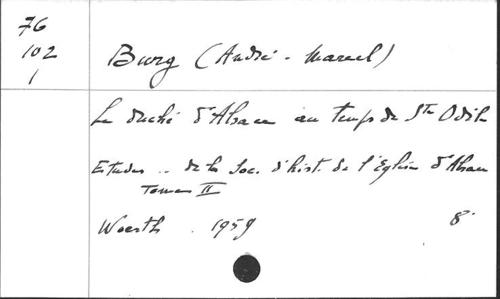 76
102
1
Burg (André-Marcel)
Le duché d'Alsace au temps de Ste Odile
Etudes .. de la Soc. d'hist. de l'Eglise d'Alsace
Tome II
Woerth . 1959 8°